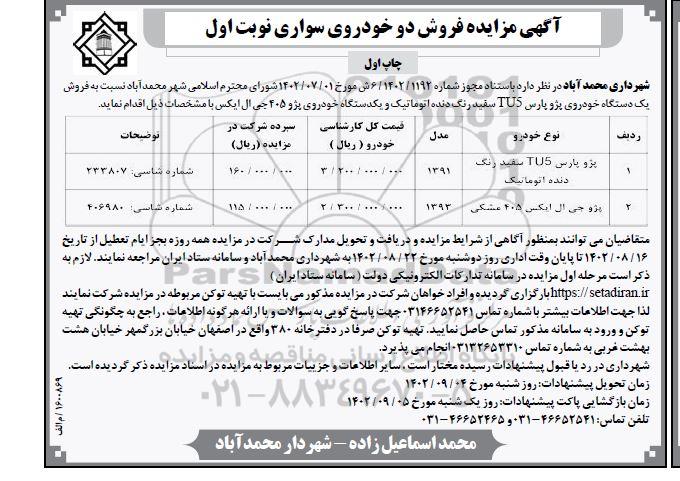 آگهی مزایده فروش دو خودروی سواری نوبت اول
چاپ اول
شهرداری محمدآباد در نظر دارد باستناد مجوز شماره ۶/۱۴۰۲/۱۱۹۲ش مورخ ۱۴۰۲/۰۷/۰۱شورای محترم اسلامی شهر محمدآباد نسبت به فروش
یک دستگاه خودروی پژو پارس TU5 سفید رنگ دنده اتوماتیک و یکدستگاه خودروی پژو ۴۰۵ جی ال ایکس با مشخصات ذیل اقدام نماید.
ردیف نوع خودرو مدل قیمت کل کارشناسی خودرو (ریال) سپرده شرکت در مزایده (ریال) توضیحات
۱ پژو پارس TU5 سفید رنگ دنده اتوماتیک ۱۳۹۱ ۳/۲۰۰/۰۰۰/۰۰۰ ۱۶۰/۰۰۰/۰۰۰ شماره شاسی: ۲۳۳۸۰۷
۲ پژو جی ال ایکس ۴۰۵ مشکی ۱۳۹۳ ۲/۳۰۰/۰۰۰/۰۰۰ ۱۱۵/۰۰۰/۰۰۰ شماره شاسی: ۴۰۶۹۸۰
متقاضیان می توانند بمنظور آگاهی از شرایط مزایده و دریافت و تحویل مدارک شرکت در مزایده همه روزه بجز ایام تعطیل از تاریخ
۱۴۰۲/۰۸/۱۶ تا پایان وقت اداری روز دوشنبه مورخ ۱۴۰۲/۰۸/۲۲به شهرداری محمدآباد و سامانه ستاد ایران مراجعه نمایند. لازم به
ذکر است مرحله اول مزایده در سامانه تدارکات الکترونیکی دولت (سامانه ستاد ایران )
https://setadiran.irبارگزاری گردیده و افراد خواهان شرکت در مزایده مذکور می بایست با تهیه توکن مربوطه در مزایده شرکت نمایند
لذا جهت اطلاعات بیشتر با شماره تماس ۰۳۱۴۶۶۵۲۵۴۱ جهت پاسخ گویی به سوالات و یا ارائه هرگونه اطلاعات ، راجع به چگونگی تهیه
توکن و ورود به سامانه مذکور تماس حاصل نمایید. تهیه توکن صرفا در دفترخانه ۳۸۰ واقع در اصفهان خیابان بزرگمهر خیابان هشت
بهشت غربی به شماره تماس ۰۳۱۳۲۶۵۳۳۱۰ انجام می پذیرد.
شهرداری در رد یا قبول پیشنهادات رسیده مختار است ، سایر اطلاعات و جزییات مربوط به مزایده در اسناد مزایده ذکر گردیده است.
زمان تحویل پیشنهادات: روز شنبه مورخ ۱۴۰۲/۰۹/۰۴
زمان بازگشایی پاکت پیشنهادات: روز یک شنبه مورخ ۱۴۰۲/۰۹/۰۵
تلفن تماس: ۴۶۶۵۲۵۴۱-۰۳۱ و ۴۶۶۵۲۴۶۵-۰۳۱
محمد اسماعیل زاده – شهردار محمدآباد
۱۶۰۰۸۶۹/م الف
پایگاه اطلاع رسانی مناقصه و مزایده
۰۲۱-۸۸۳۴۹۶۷۰-۸